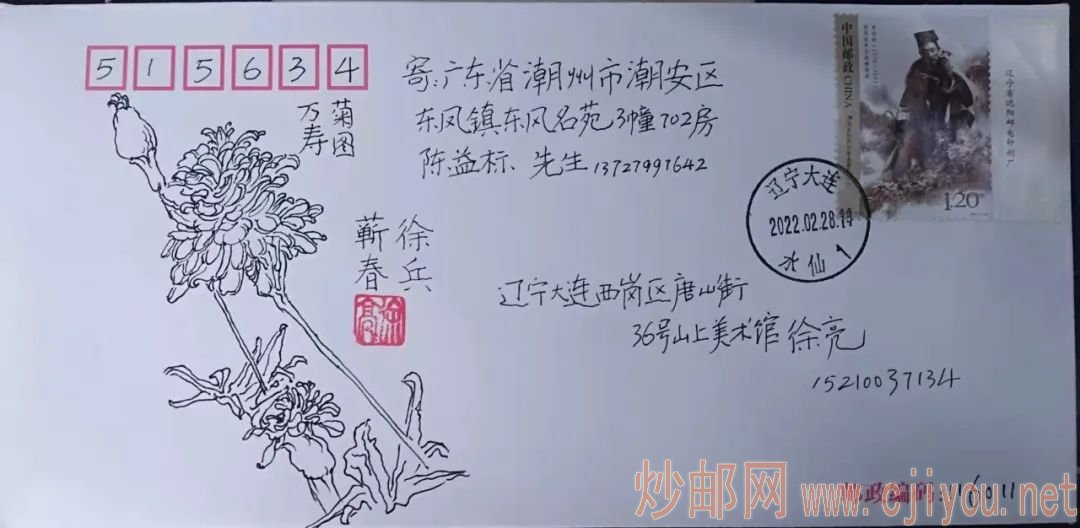 515634
寄:广东省潮州市潮安区
东凤镇东风名苑3幢702房
陈益标 先生 13727991642
菊图
万寿
徐兵
蕲春
中国邮政 CHINA
1.20元
辽宁省沈阳邮电印刷厂
辽宁大连
2022.02.28.
水仙 1
辽宁大连西岗区唐山街
36号山上美术馆 徐亮
15210037134
邮政编码:
炒邮网 www.cjiyou.net